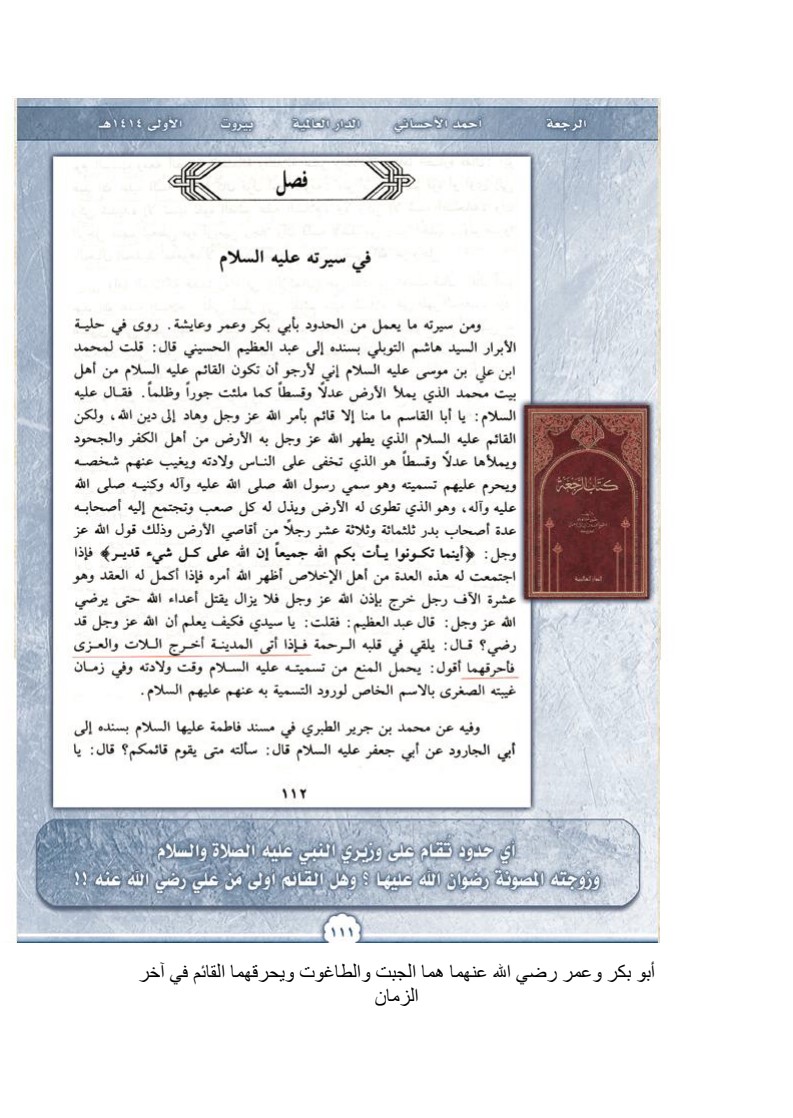 الرجعة احمد الأحسائي الدار العالمية بيروت الاولى ١٤١٤هـ
فصل
في سيرته عليه السلام
ومن سيرته ما يعمل من الحدود بأبي بكر وعمر وعايشة. روى في حلية
الأبرار السيد هاشم التوبلي بسنده إلى عبد العظيم الحسيني قال: قلت لمحمد
ابن علي بن موسى عليه السلام إني لأرجو أن تكون القائم عليه السلام من أهل
بيت محمد الذي يملأ الأرض عدلًا وقسطاً كما ملئت جوراً وظلماً. فقـال عليه
السلام: يا أبا القاسم ما منا إلا قائم بأمر الله عز وجل وهاد إلى دين الله، ولكن
القائم عليه السلام الذي يطهر الله عز وجل به الأرض من أهل الكفر والجحود
ويملأها عدلًا وقسطاً هو الذي تخفى على النـاس ولادته ويغيب عنهم شخصـه
ويحرم عليهم تسميته وهو سمي رسول الله صلى الله عليه وآله وكنيـه صلى الله
عليه وآله، وهو الذي تطوى له الأرض ويذل له كل صعب وتجتمع إليه أصحابـه
عدة أصحاب بدر ثلثمائة وثلاثة عشر رجلًا من أقاصي الأرض وذلك قول الله عز
وجل: ﴿أينما تكـونوا يـأت بكم الله جميعاً إن الله على كـل شيء قديـر﴾ فإذا
اجتمعت له هذه العدة من أهل الإخلاص أظهر الله أمره فإذا أكمل له العقد وهو
عشرة الآف رجل خرج بإذن الله عز وجل فلا يزال يقتل أعداء الله حتى يرضي
الله عز وجل: قال عبد العظيم: فقلت: يا سيدي فكيف يعلم أن الله عز وجل قد
رضي؟ قـال: يلقي في قلبه الـرحمة فـإذا أتى المدينـة أخـرج الـلات والعـزى
فأحرقهما أقول: يحمل المنع من تسميتـه عليه السـلام وقت ولادته وفي زمـان
غيبته الصغرى بالاسم الخاص لورود التسمية به عنهم عليهم السلام.
وفيه عن محمد بن جرير الطبري في مسند فاطمة عليها السلام بسنده إلى
أبي الجارود عن أبي جعفر عليه السلام قال: سألته متى يقوم قائمكم؟ قال: يا
١١٢
كتاب الرجعة
الدار العالمية
أي حدود تُقام على وزيري النبي عليه الصلاة والسلام
وزوجته المصونة رضوان الله عليها ؟ وهل القائم أولى من علي رضي الله عنه !!
١١١
أبو بكر وعمر رضي الله عنهما هما الجبت والطاغوت ويحرقهما القائم في آخر
الزمان